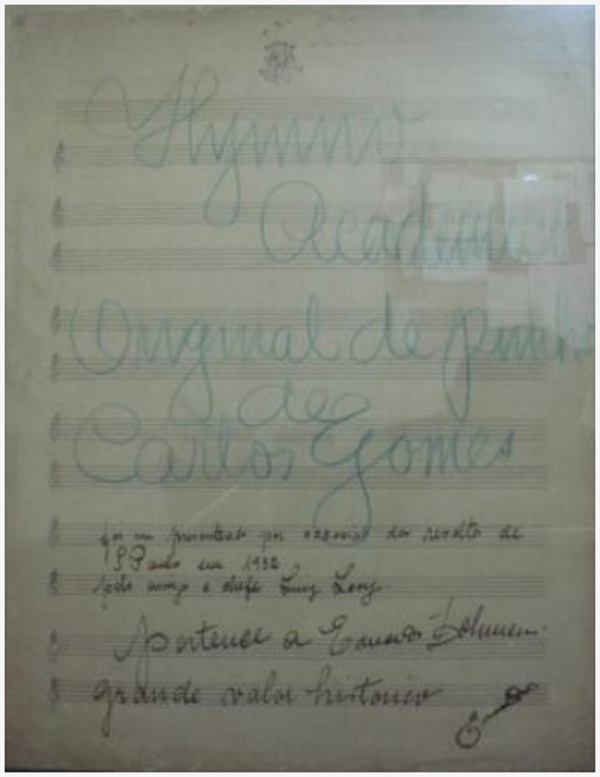 Hymno
Academico
Original de punho
de
Carlos Gomes
foi me presenteado por occasião da revolta de
S Paulo em 1932
pelo amigo e chefe Luiz Levy
Pertence a
grande valor historico